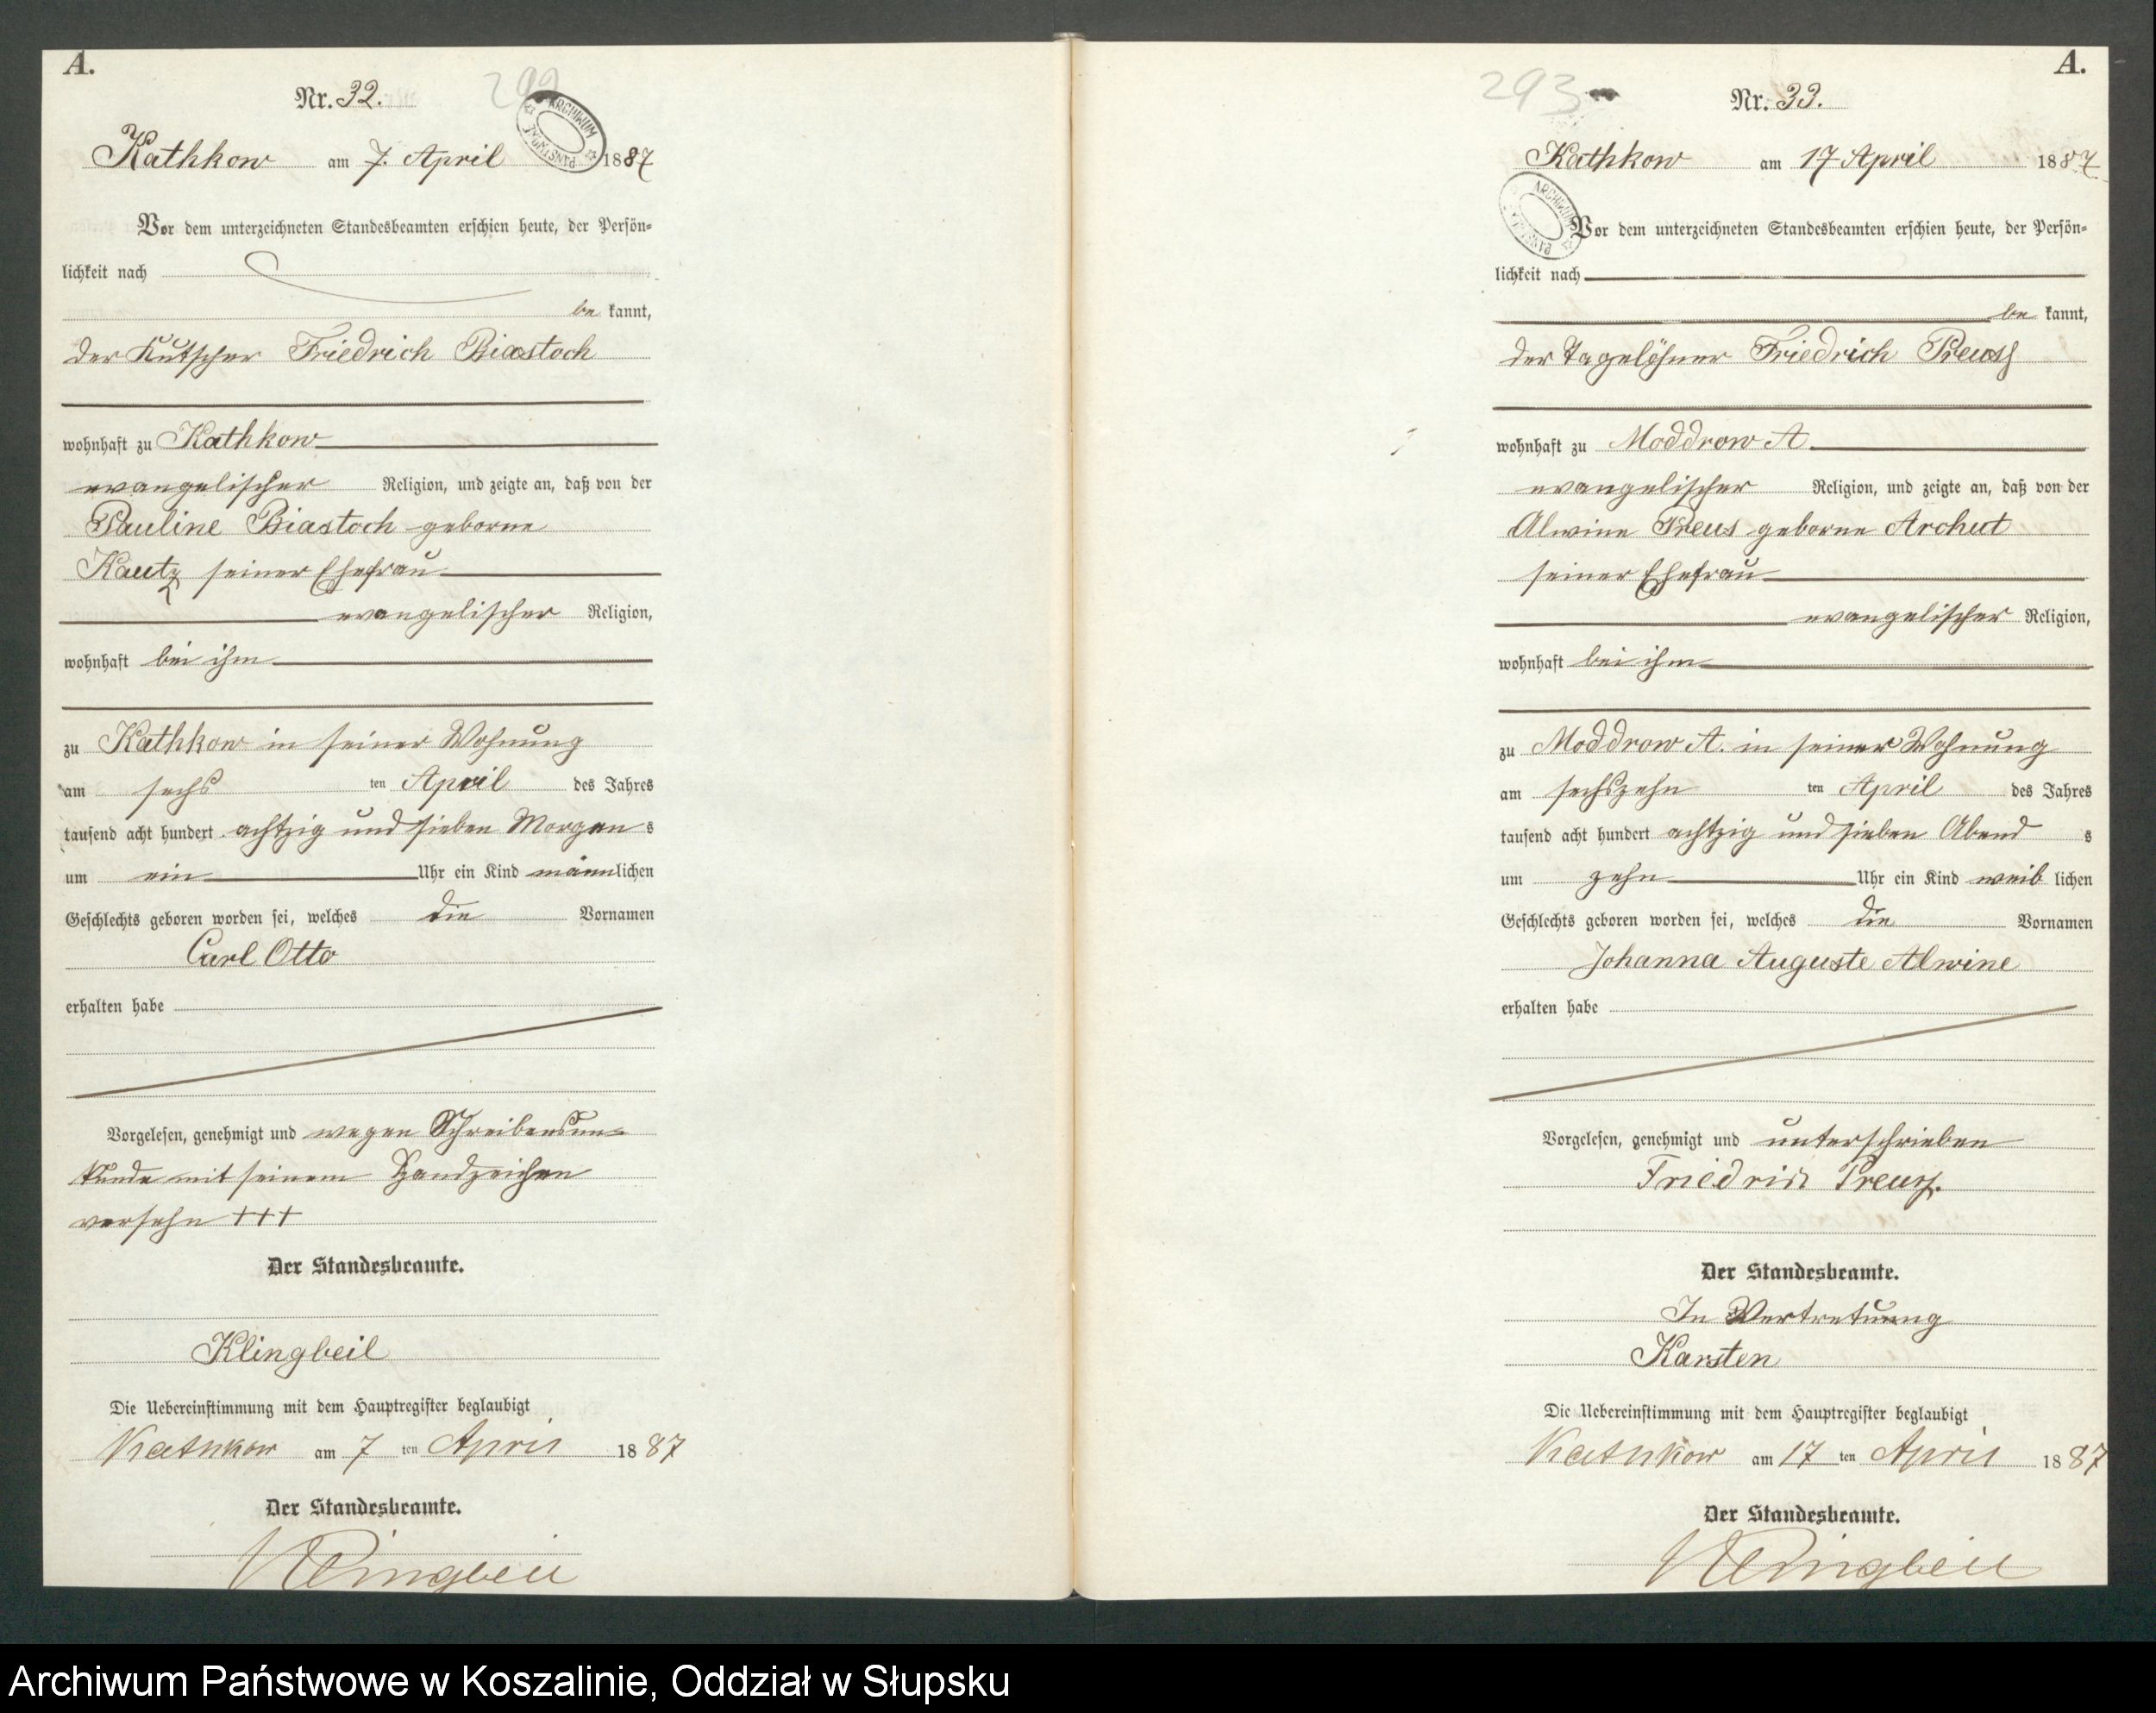 A.
Nr. 32.
292
ARCHIWUM PAŃSTWOWE
Kathkow am 7. April 1887
Vor dem unterzeichneten Standesbeamten erschien heute, der Persön-
lichkeit nach
be kannt,
der Kutscher Friedrich Biastoch
wohnhaft zu Kathkow
evangelischer Religion, und zeigte an, daß von der
Pauline Biastoch geborne
Kautz seiner Ehefrau
evangelischer Religion,
wohnhaft bei ihm
zu Kathkow in seiner Wohnung
am sechs ten April des Jahres
tausend acht hundert achtzig und sieben Morgen s
um ein Uhr ein Kind männlichen
Geschlechts geboren worden sei, welches die Vornamen
Carl Otto
erhalten habe
Vorgelesen, genehmigt und wegen Schreibensun-
kunde mit seinem Handzeichen
versehn +++
Der Standesbeamte.
Klingbeil
Die Uebereinstimmung mit dem Hauptregister beglaubigt
Kathkow am 7 ten April 1887
Der Standesbeamte.
Klingbeil
A.
293
Nr. 33.
Kathkow am 17 April 1887
ARCHIWUM PAŃSTWOWE
Vor dem unterzeichneten Standesbeamten erschien heute, der Persön-
lichkeit nach
be kannt,
der Tagelöhner Friedrich Preuß
wohnhaft zu Moddrow A.
evangelischer Religion, und zeigte an, daß von der
Alwine Preus geborne Archut
seiner Ehefrau
evangelischer Religion,
wohnhaft bei ihm
zu Moddrow A. in seiner Wohnung
am sechszehn ten April des Jahres
tausend acht hundert achtzig und sieben Abend s
um zehn Uhr ein Kind weib lichen
Geschlechts geboren worden sei, welches die Vornamen
Johanna Auguste Alwine
erhalten habe
Vorgelesen, genehmigt und unterschrieben
Friedrich Preuß.
Der Standesbeamte.
In Vertretung
Karsten
Die Uebereinstimmung mit dem Hauptregister beglaubigt
Kathkow am 17 ten April 1887
Der Standesbeamte.
Klingbeil
Archiwum Państwowe w Koszalinie, Oddział w Słupsku